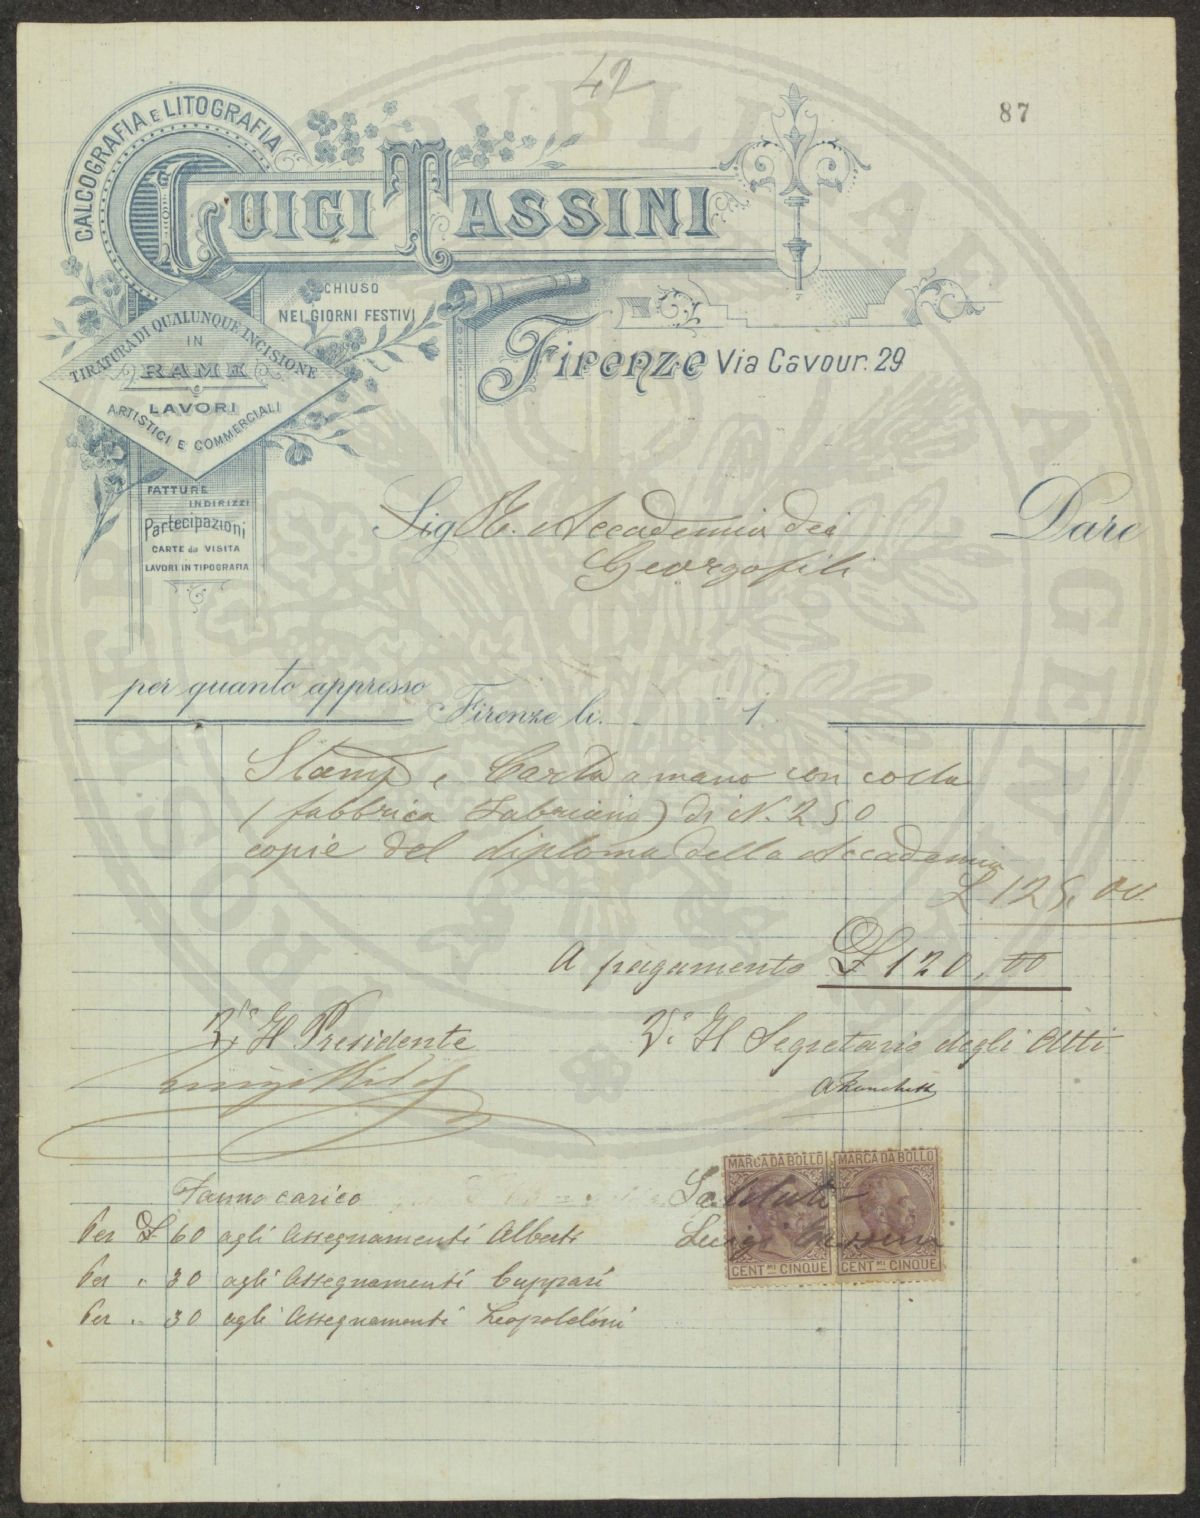 42
87
CALCOGRAFIA E LITOGRAFIA
LUIGI TASSINI
CHIUSO
NEI GIORNI FESTIVI
TIRATURA DI QUALUNQUE INCISIONE
IN
RAME
E
LAVORI
ARTISTICI E COMMERCIALI
Firenze Via Cavour. 29
FATTURE
INDIRIZZI
Partecipazioni
CARTE da VISITA
LAVORI IN TIPOGRAFIA
Sig R. Accademia dei Dare
Georgofili
per quanto appresso
Firenze li. 1
Stamp e Carta a mano con colla
(fabbrica Fabriano) di N. 250
copie del diploma della Accademia
£ 125,00
A pagamento £ 120,00
Il Presidente
Il Segretario degli Atti
MARCA DA BOLLO MARCA DA BOLLO
CENT.MI CINQUE CENT.MI CINQUE
Saldato
Luigi Tassini
Fanno carico
Per £ 60 agli Assegnamenti Alberti
Per " 30 agli Assegnamenti Cuppari
Per " 30 agli Assegnamenti Leopoldini